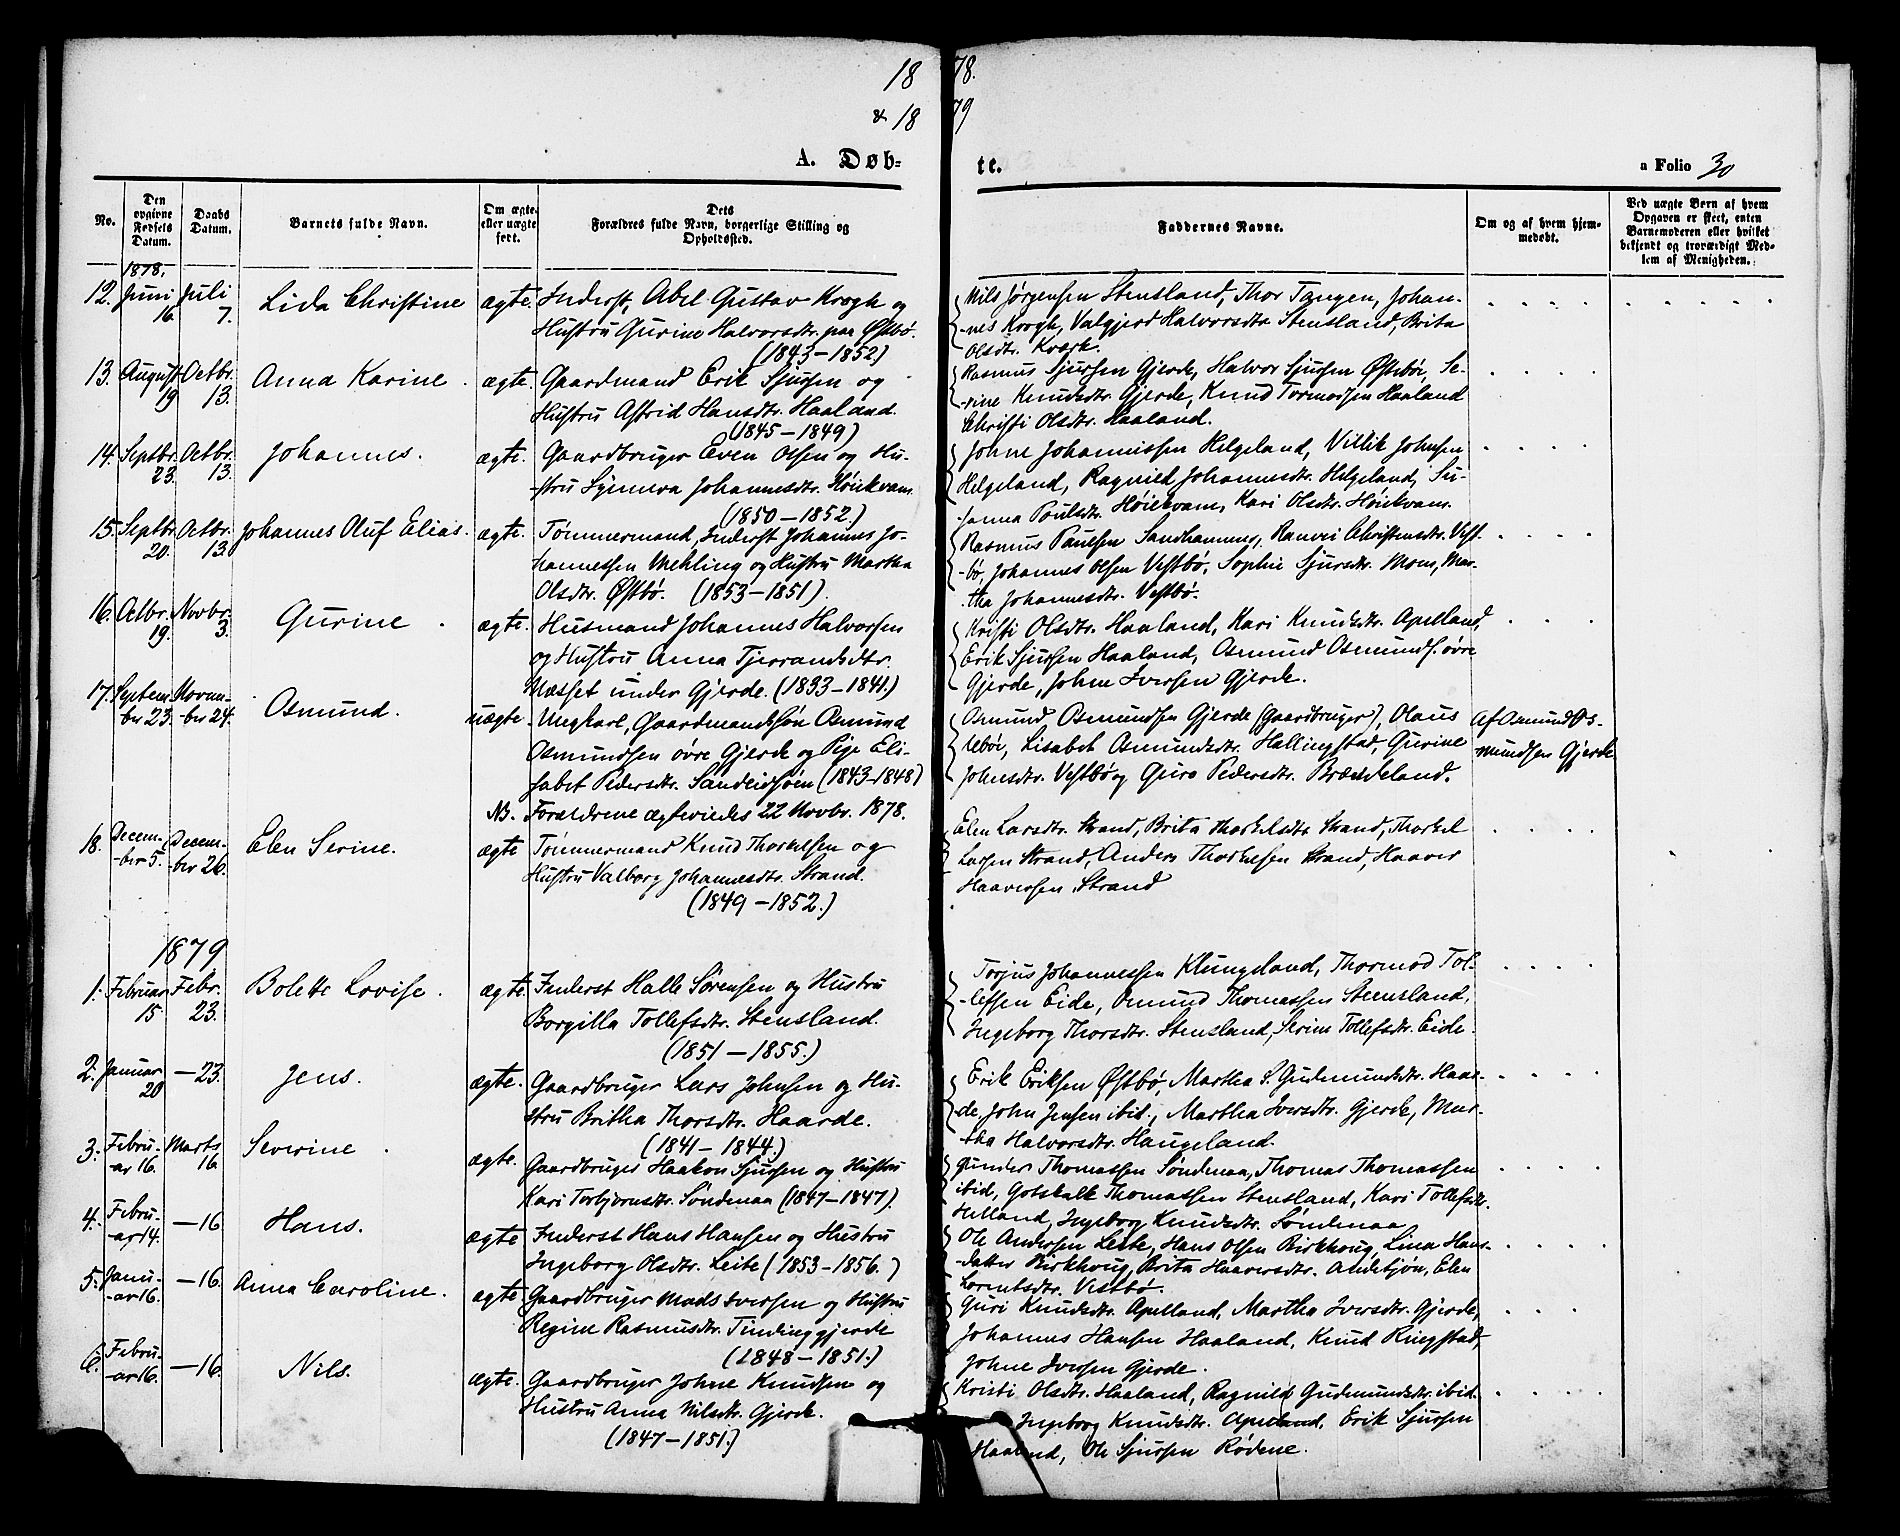 18 78.
& 18 79
A. Døb- te.
a Folio 30
No.
Den opgivne Fødsels Datum.
Daabs Datum.
Barnets fulde Navn.
Om ægte eller uægte født.
Dets Forældres fulde Navn, borgerlige Stilling og Opholdssted.
Faddernes Navne.
Om og af hvem hjemmedøbt.
Ved uægte Børn af hvem Opgaven er skeet, enten Barnemoderen eller hvilket bekjendt og troværdigt Medlem af Menigheden.
1878.
12. Juni 16 Juli 7. Lida Christine ægte. Inderst, Abel Gustav Krogh og
Hustru Gurine Halvorsdtr. paa Østbø.
(1843-1852)
Nils Jørgensen Stensland, Thor Tangen, Johan-
-nes Krogh, Valgjerd Halvorsdtr Stensland, Brita
Olsdtr. Kværk.
13. August 19 Octbr. 13. Anna Karine. ægte. Gaardmand Erik Sjursen og
Hustru Astrid Hansdtr. Haaland.
(1845-1849)
Rasmus Sjursen Gjerde, Halvor Sjursen Østebø, Se-
-rine Knudsdtr. Gjerde, Knud Tormodsen Haaland
Christi Olsdtr. Haaland.
14. Septbr. 23. Octbr. 13. Johannes. ægte. Gaardbruger Even Olsen og Hu-
-stru Synneva Johannesdtr. Høiekvam
(1850-1852.)
Johne Johannissen Helgeland, Villik Johnsen
Helgeland, Ragnild Johannesdtr. Helgeland, Su-
-sanna Poulsdtr. Høiekvam, Kari Olsdtr. Høiekvam.
15. Septbr. 20. Octbr. 13 Johannes Oluf Elias. ægte. Tømmermand, Inderst Johannes Jo-
hannessen Mehling og Hustru Martha
Olsdtr. Østbø. (1853-1851).
Rasmus Paulsen Sandhammer, Ranvei Christensdtr. Vest-
-bø, Johannes Olsen Vestbø, Sophie Sjursdtr. Moen, Mar-
-tha Johannesdtr. Vestbø.
16. Octbr. 19. Novbr. 3. Gurine. ægte. Husmand Johannes Halvorsen
og Hustru Anna Tjerandsdtr.
Næsset under Gjerde. (1833-1841.)
Kristi Olsdtr. Haaland, Kari Knudsdtr. Apelland,
Erik Sjursen Haaland, Osmund Osmunds. øvre
Gjerde, Johne Iversen Gjerde.
17. Septem- ber 23. Novem- ber 24. Osmund. uægte. Ungkarl, Gaardmandssøn Osmund
Osmundsen øvre Gjerde og Pige Eli-
sabet Pedersdtr. Sandeidsøen (1843-1848)
NB. Forældrene ægteviedes 22 Novbr. 1878.
Osmund Osmundsen Gjerde (Gaardbruger), Olaus
Uebøe, Lisabet Osmundsdtr. Hallingstad, Gurine
Johnsdtr. Vestbø og Guro Pedersdtr. Brændeland.
Af Osmund Os-
-mundsen Gjerde
18. Decem- -ber 5. Decem- ber 26. Elen Serine. ægte Tømmermand Knud Thorkelsen og
Hustru Valborg Johannesdtr. Strand.
(1849-1852.)
Elen Larsdtr. Strand, Brita Thorkelsdtr Strand, Thorkel
Larsen Strand, Anders Thorkelsen Strand, Haaver
Haaversen Strand
1879
1. Februar 15 Febr. 23. Bolette Lovise. ægte. Inderst Halle Sørensen og Hustru
Borgilla Tollefsdtr. Stensland.
(1851-1855.)
Torjus Johannessen Klungeland, Thormod Tol-
-lefsen Eide, Osmund Thomassen Steensland,
Ingeborg Thorsdtr. Stensland, Serine Tollefsdtr. Eide.
2. Januar 20 -23. Jens. ægte. Gaardbruger Lars Johnsen og Hu-
stru Britha Thorsdtr. Haarde.
(1841-1844.)
Erik Eriksen Østbø, Martha S. Gudmundsdtr. Haar-
de, John Jensen ibid., Martha Iversdtr. Gjerde, Mar-
-tha Halvorsdtr. Haugeland.
3. Febru- -ar 16. Marts 16 Severine. ægte. Gaardbruger Haakon Sjursen og Hustru
Kari Torbjørnsdtr. Søndenaa (1847-1847).
Gunder Thomassen Søndenaa, Thomas Thomassen
ibid, Gotskalk Thomassen Stensland, Kari Tollefsdtr.
Helland, Ingeborg Knudsdtr. Søndenaa
4. Febru- -ar 14. -16 Hans. ægte Inderst Hans Hansen og Hustru
Ingeborg Olsdtr. Leite (1853-1856.)
Ole Andersen Leite, Hans Olsen Birkhoug, Lina Hans-
datter Birkhoug, Brita Haaversdtr. Andetjøn, Elen
Lorentsdtr. Vestbø.
5. Janu- -ar 16. -16 Anna Caroline. ægte Gaardbruger Mads Iversen og Hustru
Regine Rasmusdtr. Tindinggjerde
(1848-1851.)
Guri Knudsdtr. Apelland, Martha Iversdtr. Gjerde,
Johannes Hansen Haaland, Knud Ringstad,
Johne Iversen Gjerde.
6. Febru- -ar 16. -16. Nils. ægte. Gaardbruger Johne Knudsen og
Hustru Anna Nilsdtr. Gjerde.
(1847-1851.)
Kristi Olsdtr. Haaland, Ragnild Gudmundsdtr. ibid.
Ingeborg Knudsdtr. Apelland, Erik Sjursen
Haaland, Ole Sjursen Rødene.